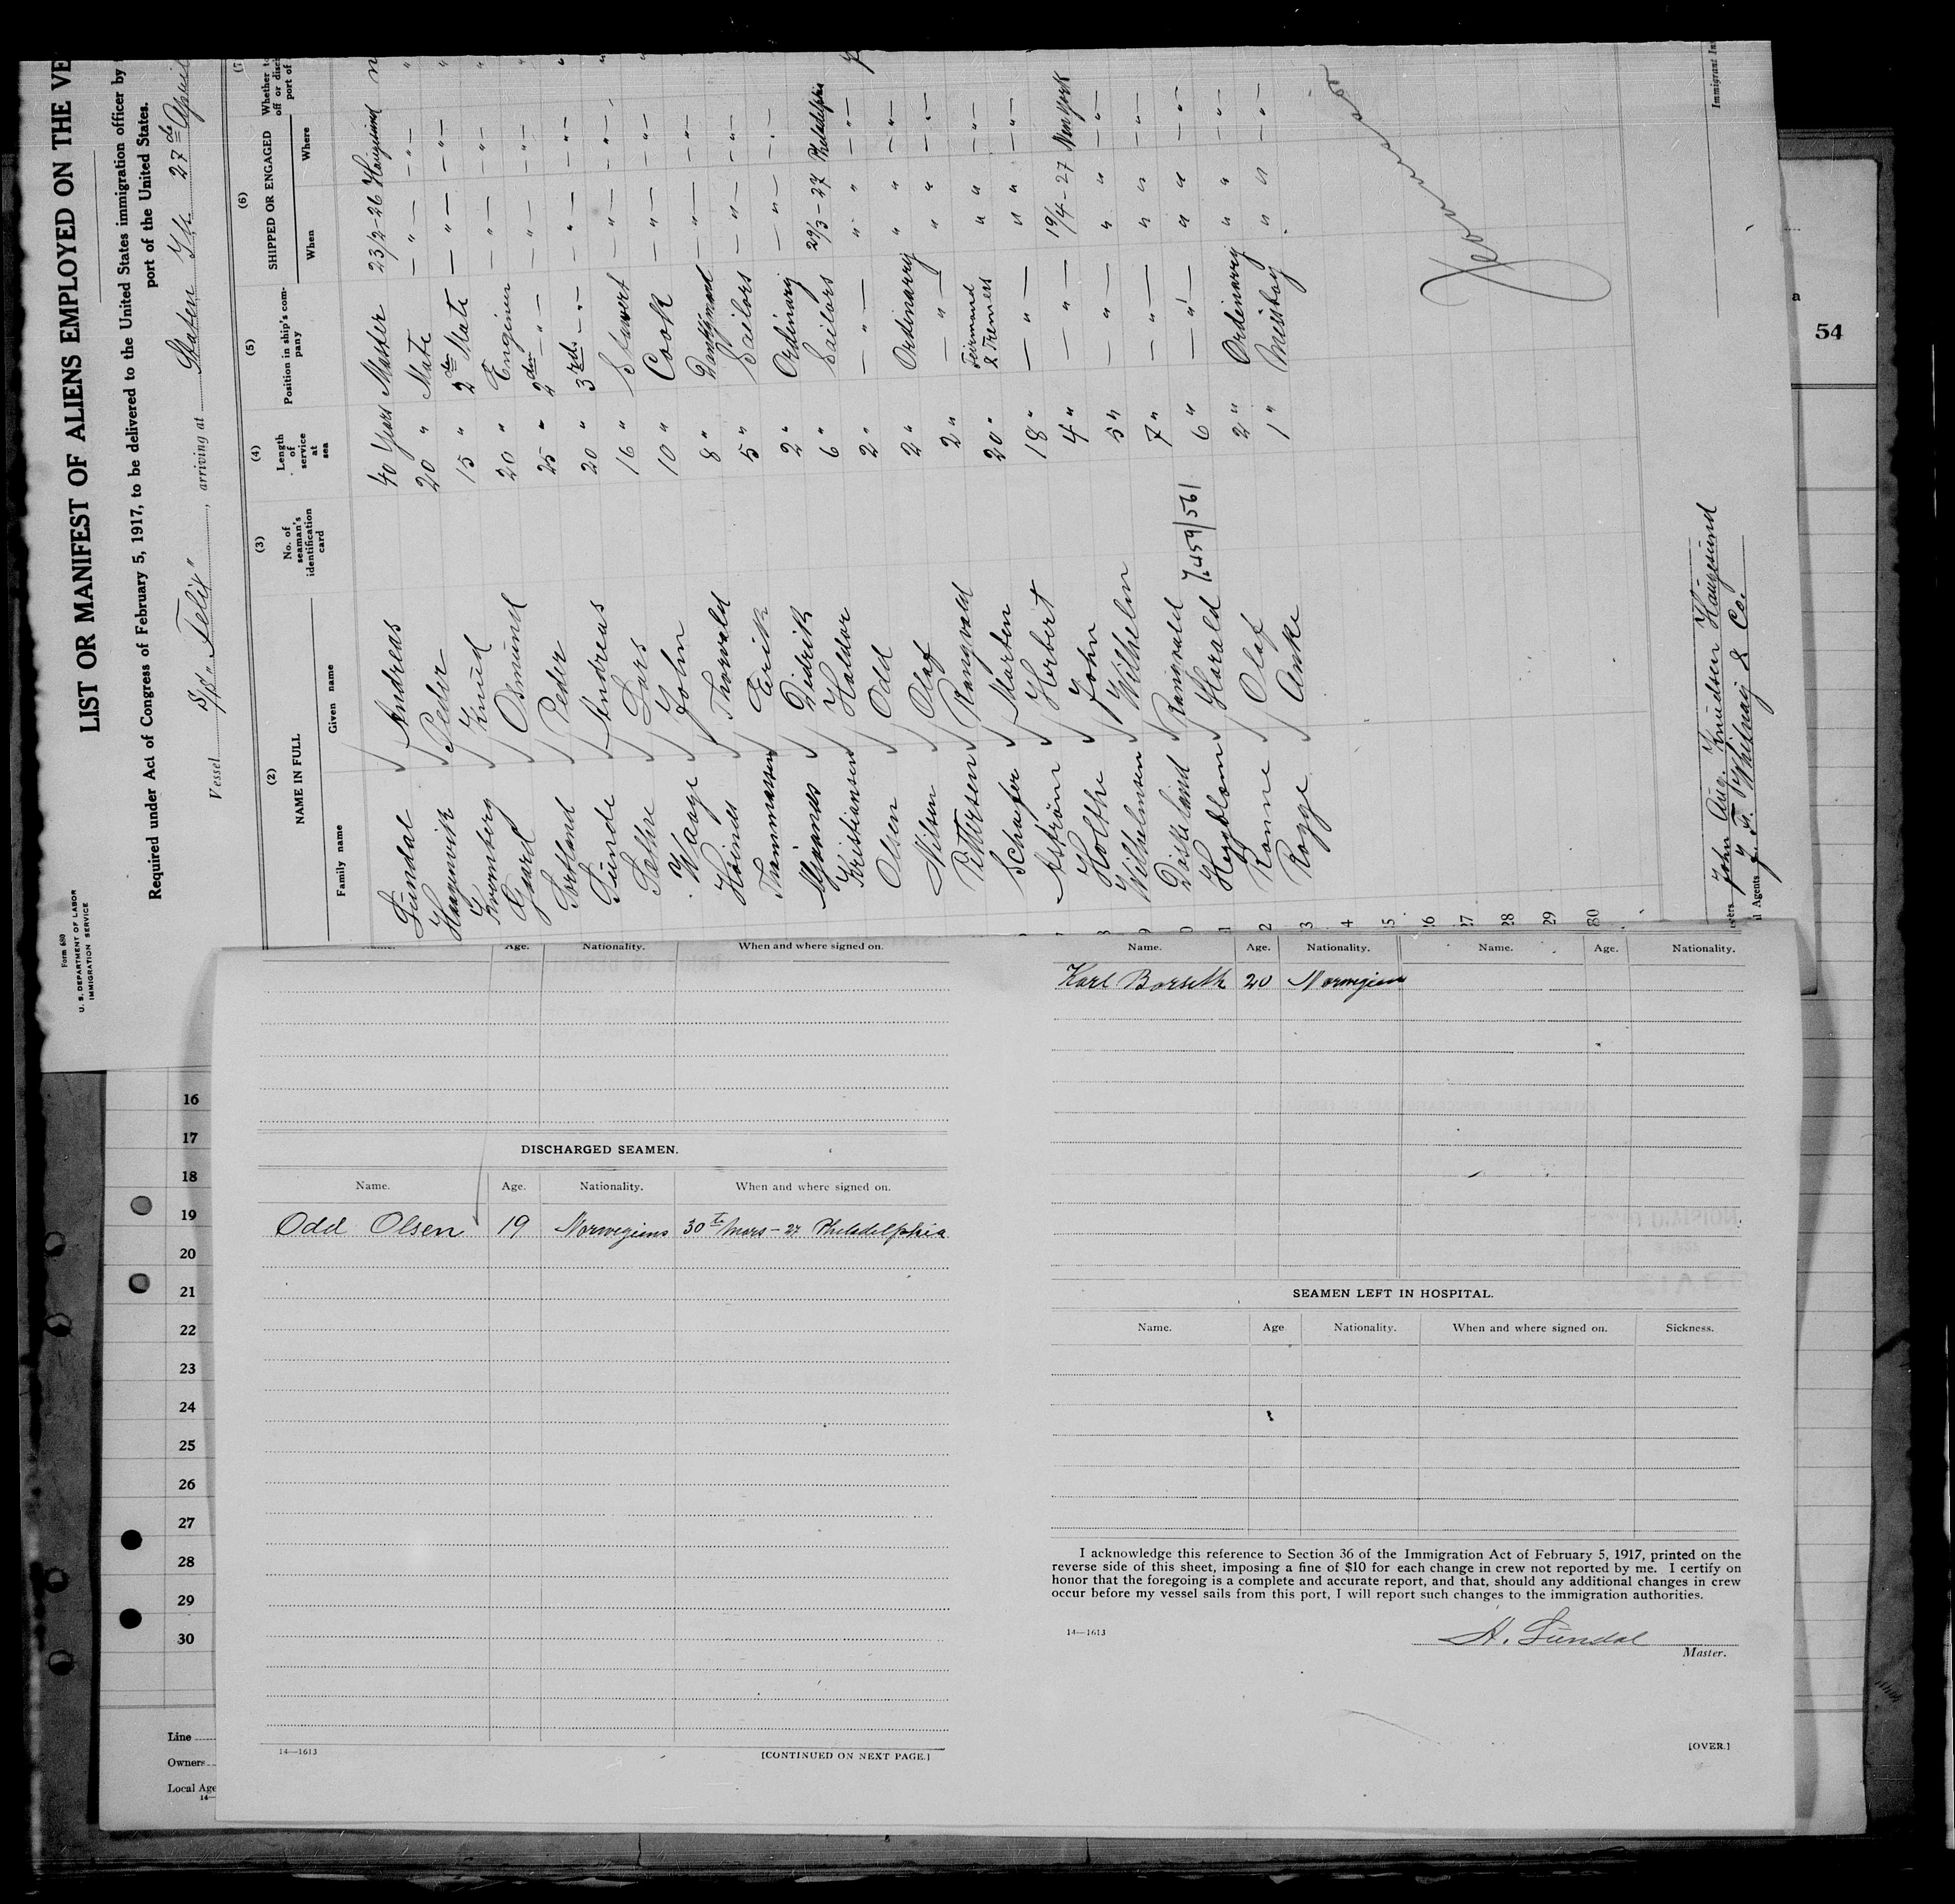 Form 680
U. S. DEPARTMENT OF LABOR
IMMIGRATION SERVICE
LIST OR MANIFEST OF ALIENS EMPLOYED ON THE VE
Required under Act of Congress of February 5, 1917, to be delivered to the United States immigration officer by
port of the United States.
Vessel S/S "Felix", arriving at Staten Isl. 27de April
(2) (3) (4) (5) (6) (7
NAME IN FULL
Family name Given name
No. of seaman's identification card
Length of service at sea
Position in ship's company
SHIPPED OR ENGAGED
When Where
Whether t
off or disc
port of
Lundal Andreas 40 years Master 23/2-26 Haugesund
Haugenvik Peder 20 " Mate — " — — " —
Kromberg Knud 15 " 2den Mate — " — — " —
Gaard Osmund 20 " Enginer — " — — " —
Sortland Peder 25 " 2den — " — — " — — " —
Sunde Andreas 20 " 3rd — " — — " — — " —
Sethre Lars 16 " Stuvert — " — — " —
Waage John 10 " Cook — " — — " —
Hoines Thorvald 8 " — " — — " —
Thommassen Erik 5 " Sailors — " — — " —
Didrik 2 " Ordinary — " — — " —
Kristiansen Haldor 6 " Sailors 29/3-27 Philadelphia
Olsen Odd 2 " — " — " " — " —
Nilsen Olaf 2 " Ordinarry " " — " —
Pettersen Rangvald 2 " — " — " " — " —
Schafer Marten 20 " Firmend & Tremers " " — " —
Astrøm Herbert 18 " — " — " " — " —
Holthe John 4 " — " — 19/4-27 New York
Wilhelmsen Wilhelm 5 " — " — " " — " —
Rangvald 7 " — " — " " — " —
Heyblom Harald 7.459/561 6 " — " — " " — " —
Ronne Olaf 2 " Ordenarry " " — " —
Rogge Anke 1 " Messboy " " — " —
26
27
28
29
30
John Aug. Knudsen Haugesund
l Agents J. F. Whitney & Co.
Immigrant In
54
Name. Age. Nationality. When and where signed on.
DISCHARGED SEAMEN.
Name. Age. Nationality. When and where signed on.
Odd Olsen 19 Norwegians 30te Mars - 27 Philadelphia
14—1613
[CONTINUED ON NEXT PAGE.]
Name. Age. Nationality. Name. Age. Nationality.
Karl Borseth 20 Norwegians
SEAMEN LEFT IN HOSPITAL.
Name. Age Nationality. When and where signed on. Sickness.
I acknowledge this reference to Section 36 of the Immigration Act of February 5, 1917, printed on the
reverse side of this sheet, imposing a fine of $10 for each change in crew not reported by me. I certify on
honor that the foregoing is a complete and accurate report, and that, should any additional changes in crew
occur before my vessel sails from this port, I will report such changes to the immigration authorities.
14—1613
A. Lundal
Master.
[OVER.]
16
17
18
19
20
21
22
23
24
25
26
27
28
29
30
Line
Owners
Local Age
14—